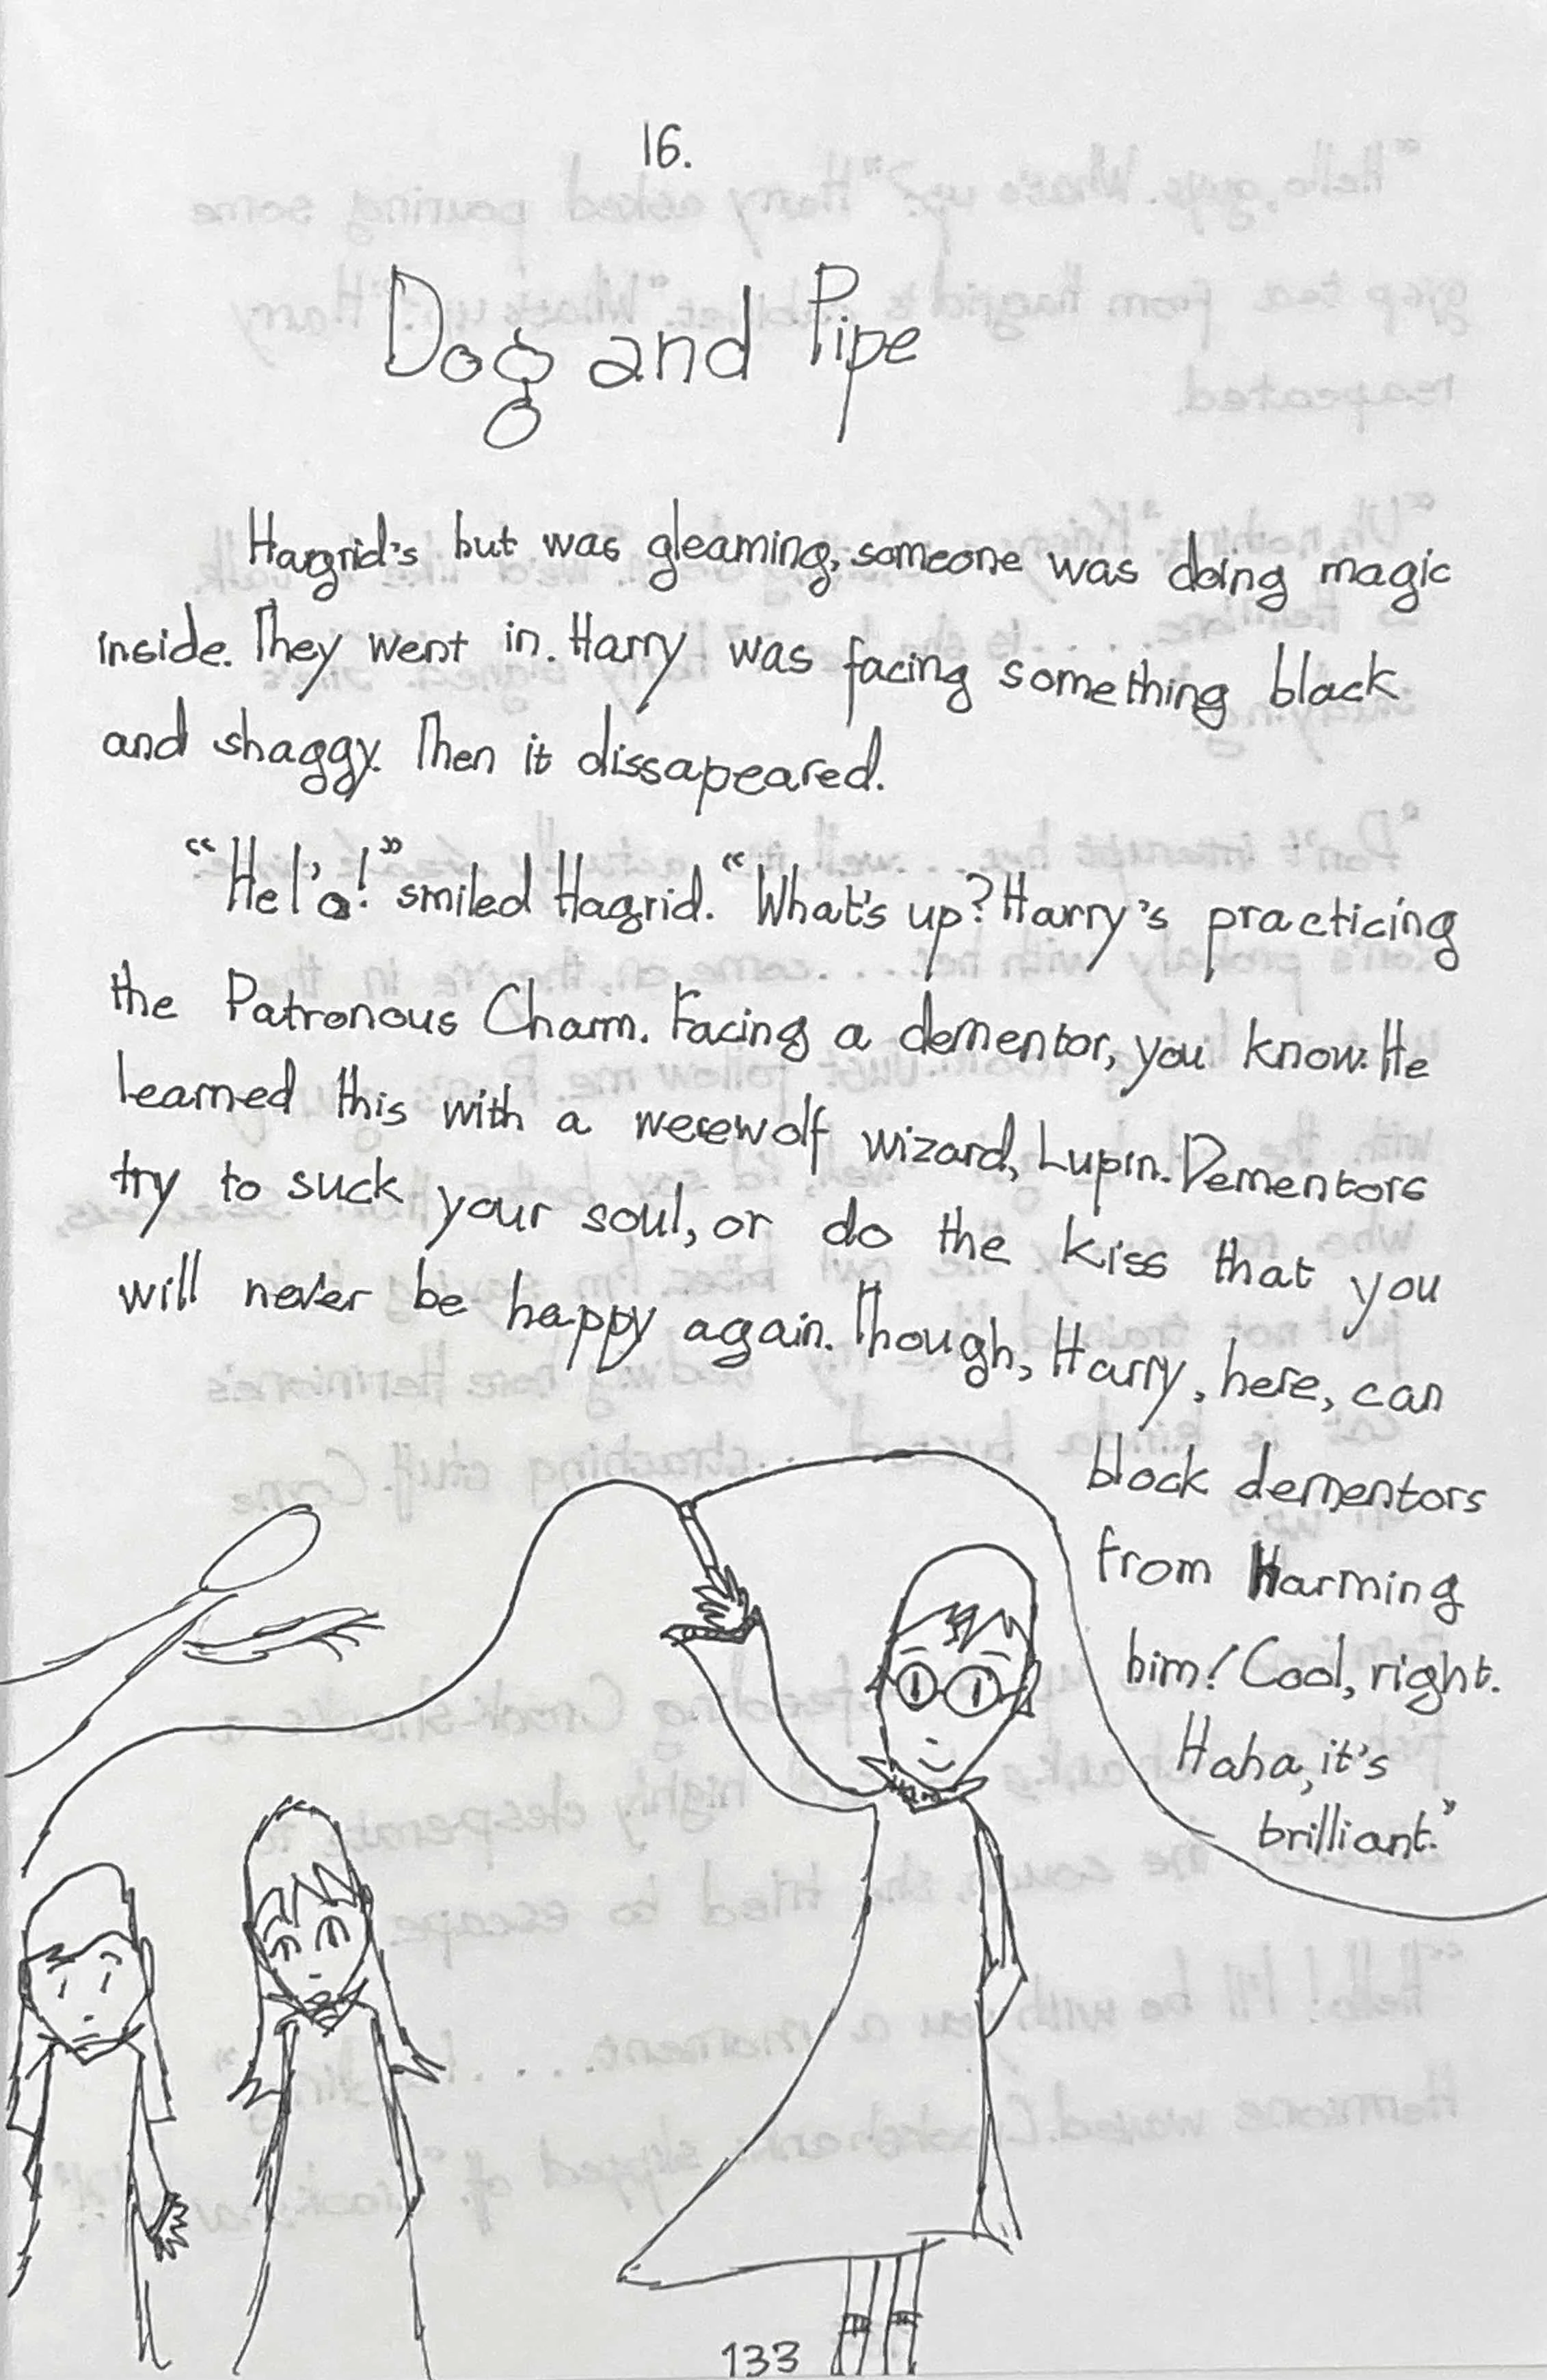 16.
Dog and Pipe
Hargrid's hut was gleaming, someone was doing magic
inside. They went in. Harry was facing something black
and shaggy. Then it dissapeared.
"Hel'o!" smiled Hagrid. "What's up? Harry's practicing
the Patronous Charm. Facing a dementor, you know. He
learned this with a werewolf wizard, Lupin. Dementors
try to suck your soul, or do the kiss that you
will never be happy again. Though, Harry, here, can
block dementors
from Harming
him! Cool, right.
Haha, it's
brilliant."
133